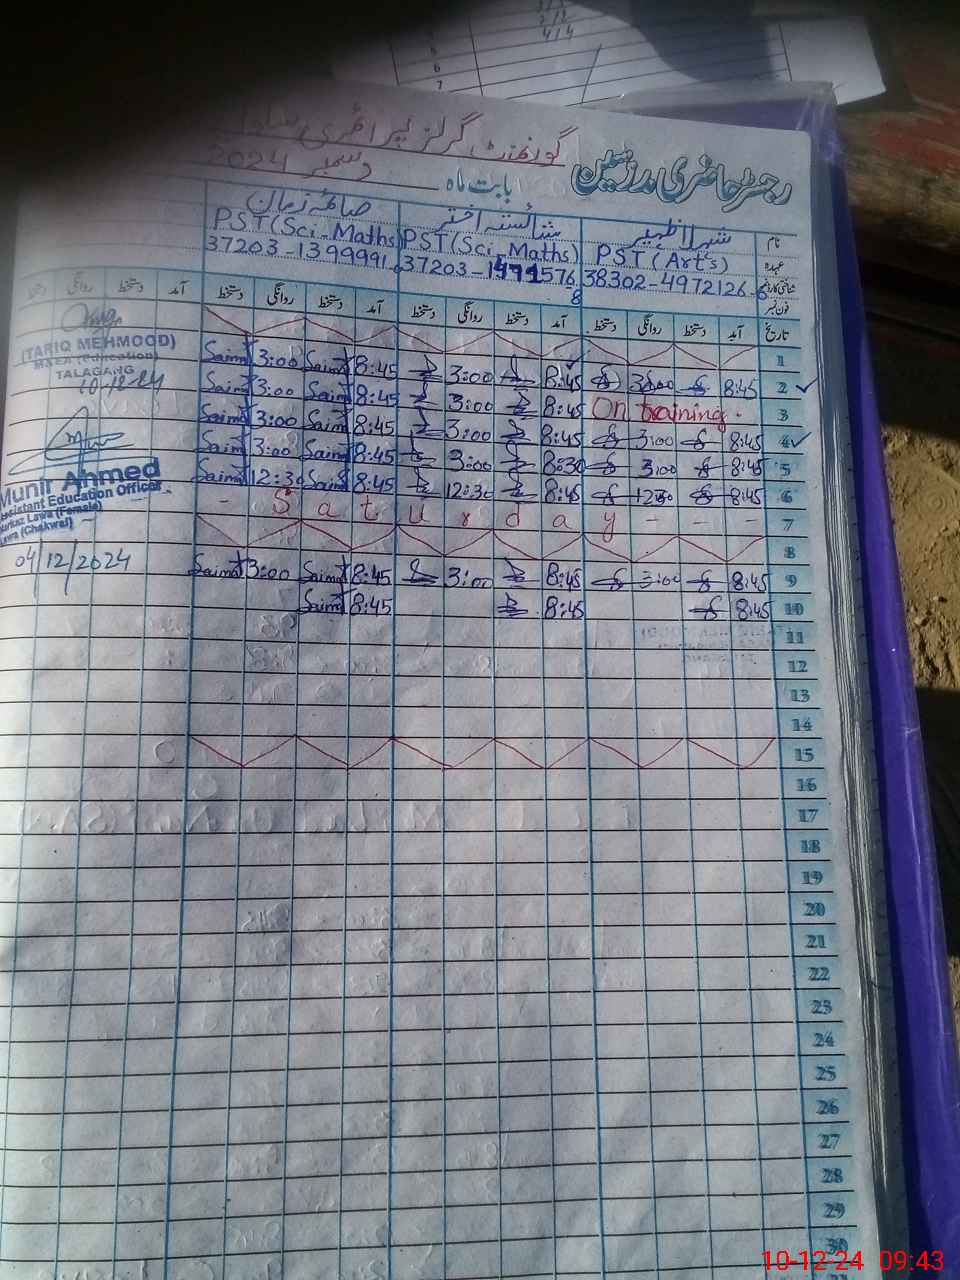 گورنمنٹ گرلز پرائمری
رجسٹر حاضری مدرسین
بابت ماہ دسمبر 2024
نام شہلا ظہیر شائستہ اختر صائمہ زمان
عہدہ PST (Art's) PST (Sci-Maths) PST (Sci-Maths)
شناختی کارڈ نمبر 38302-4972126-6 37203-1491576-8 37203-1399991-
فون نمبر
تاریخ آمد دستخط روانگی دستخط آمد دستخط روانگی دستخط آمد دستخط روانگی دستخط آمد دستخط روانگی دستخط
1
2 8:45 3:00 8:45 3:00 8:45 Saima 3:00 Saima
3 On training. 8:45 3:00 8:45 Saima 3:00 Saima
4 8:45 3:00 8:45 3:00 8:45 Saima 3:00 Saima
5 8:45 3:00 8:30 3:00 8:45 Saima 3:00 Saima
6 8:45 12:30 8:45 12:30 8:45 Saima 12:30 Saima
7 - S a t u r d a y - - - -
8
9 8:45 3:00 8:45 3:00 8:45 Saima 3:00 Saima
10 8:45 8:45 8:45 Saima
11
12
13
14
15
16
17
18
19
20
21
22
23
24
25
26
27
28
29
30
(TARIQ MEHMOOD)
MSEA (Education)
TALAGANG
10-12-24
Munir Ahmed
Assistant Education Officer
Markaz Lawa (Female)
Lawa (Chakwal)
04/12/2024
6
7
10-12-24 09:43